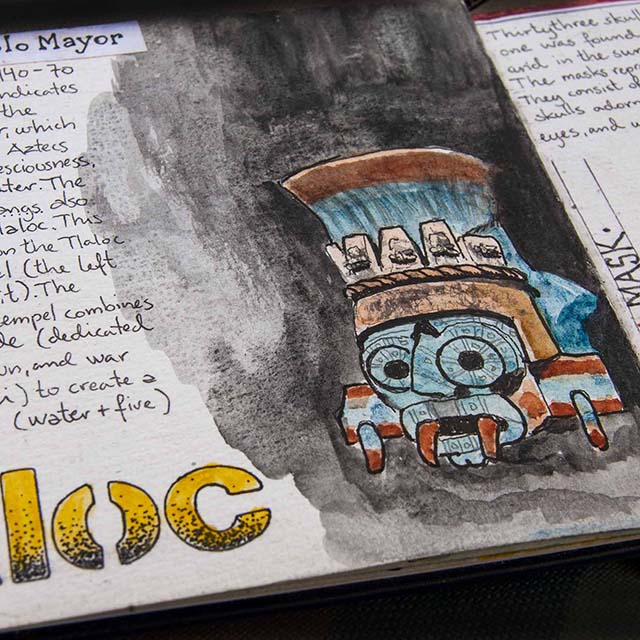 plo Mayor
140-70
ndicates
the
r, which
Aztecs
sciousness,
ter. The
ongs also
laloc. This
on the Tlaloc
el (the left
it). The
tempel combines
de (dedicated
un, and war
i) to create a
(water + five)
loc
Thirtythree sku
one was found
in the su
The masks repr
They consist
skulls ador
eyes, and
MASK.